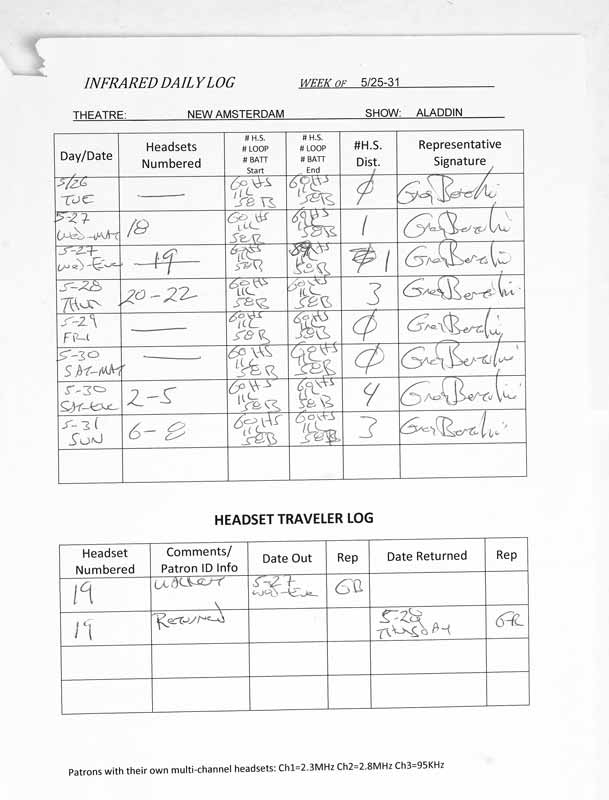 INFRARED DAILY LOG WEEK OF 5/25-31
THEATRE: NEW AMSTERDAM SHOW: ALADDIN
Day/Date Headsets Numbered # H.S. # LOOP # BATT Start # H.S. # LOOP # BATT End #H.S. Dist. Representative Signature
5/26 TUE — 60 HS 11L 58B 60 HS 11L 58B Ø
5-27 WED-MAT 18 60 HS 11L 58B 60 HS 11L 58B 1
5-27 WED-EVE 19 60 HS 11L 58B 11L 58B 1
5-28 THUR 20-22 60 HS 11L 58B 60 HS 11L 58B 3
5-29 FRI — 60 HS 11L 58B 60 HS 11L 58B Ø
5-30 SAT-MAT — 60 HS 11L 58B 60 HS 11L 58B Ø
5-30 SAT-EVE 2-5 60 HS 11L 58B 60 HS 11L 58B 4
5-31 SUN 6-8 60 HS 11L 58B 60 HS 11L 58B 3
HEADSET TRAVELER LOG
Headset Numbered Comments/ Patron ID Info Date Out Rep Date Returned Rep
19 5-27 WED-EVE GB
19 RETURNED 5-28 THURSDAY
Patrons with their own multi-channel headsets: Ch1=2.3MHz Ch2=2.8MHz Ch3=95KHz